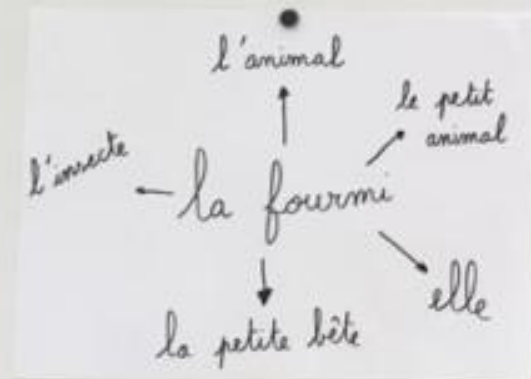 l'animal
le petit
animal
l'insecte
la fourmi
elle
la petite bête